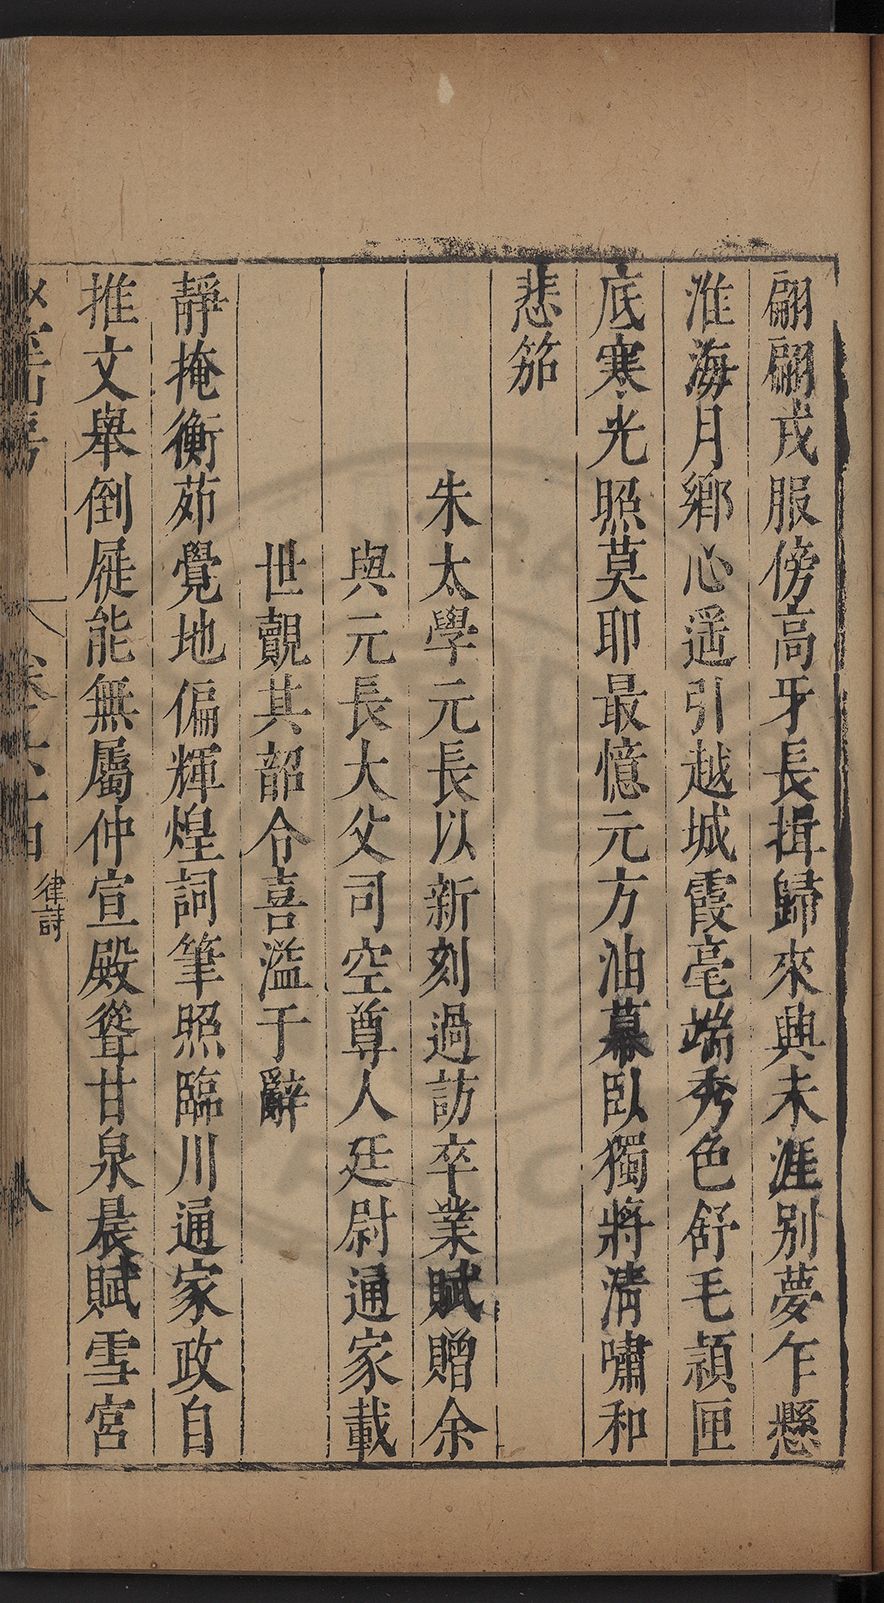 翩翩戎服傍高牙長揖歸來興未涯別夢乍懸
淮海月鄉心遥引越城霞毫端秀色舒毛穎匣
底寒光照莫耶最憶元方油幕臥獨將清嘯和
悲笳
朱太學元長以新刻過訪卒業賦贈余
與元長大父司空尊人廷尉通家載
世覿其韶令喜溢于辭
靜掩衡茆覺地偏輝煌詞筆照臨川通家政自
推文舉倒屣能無屬仲宣殿聳甘泉晨賦雪宮
山房
卷之六十四
律詩
八